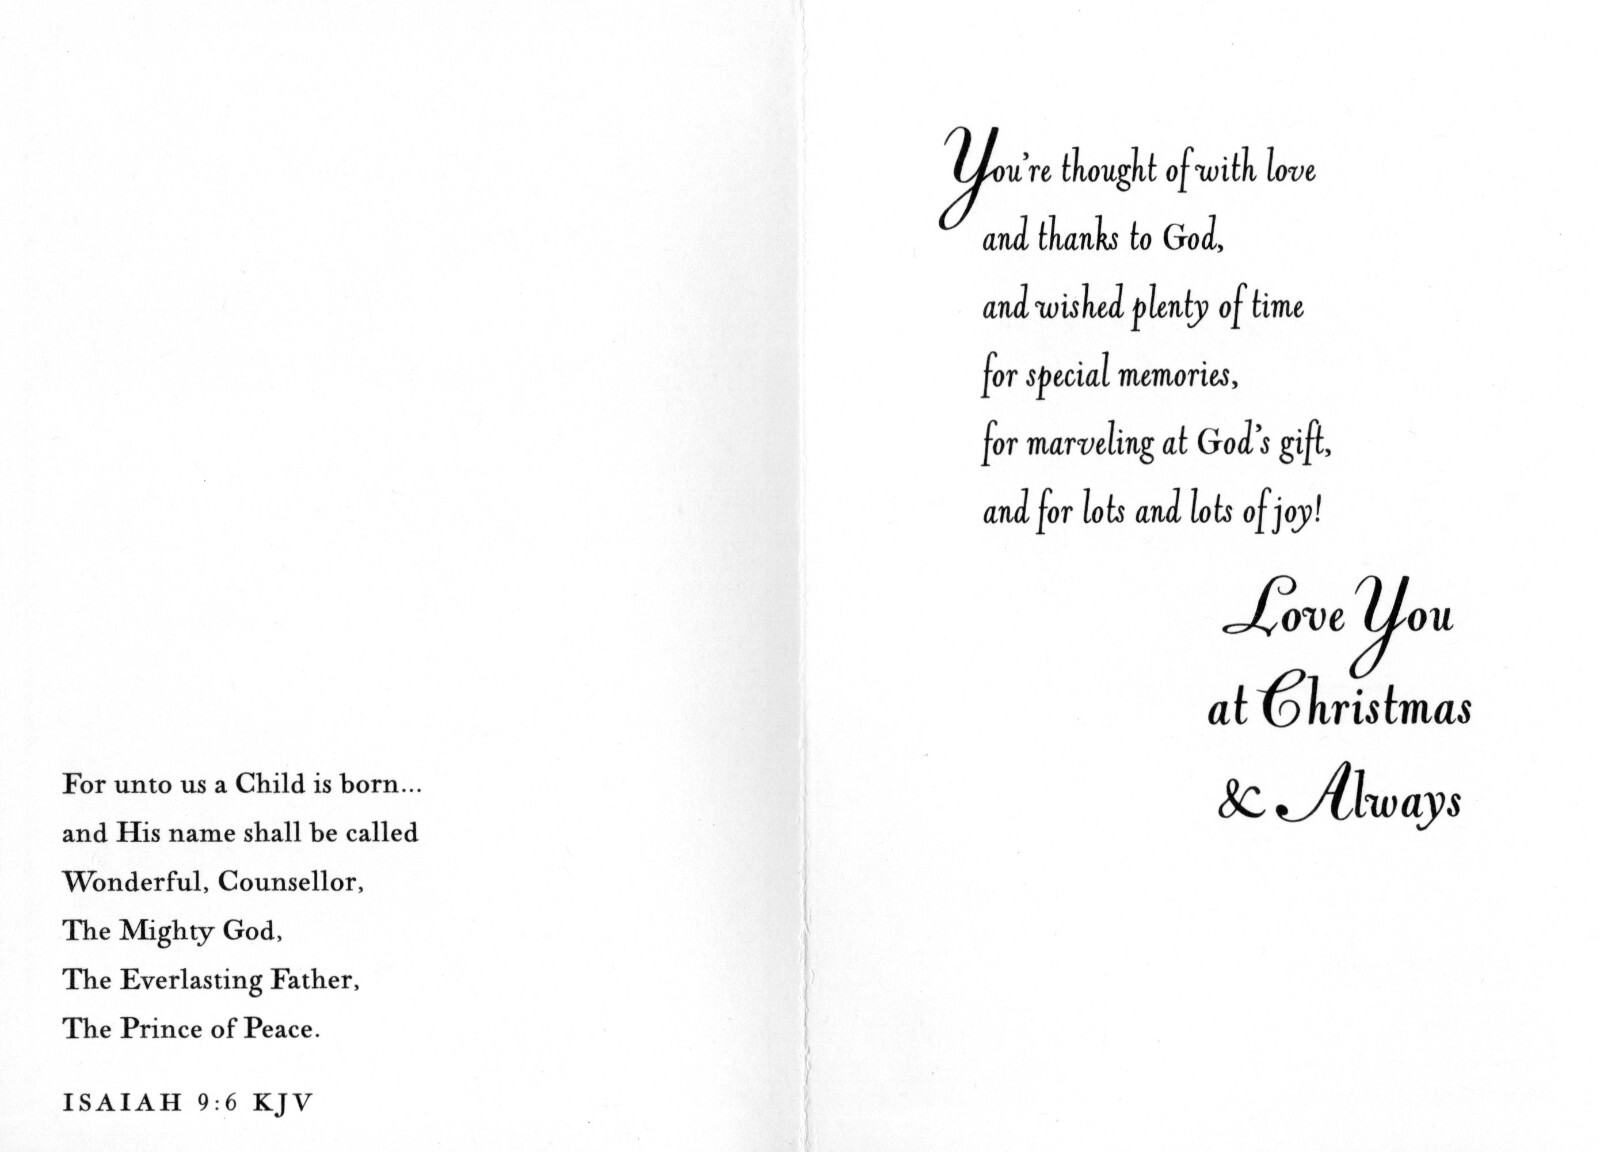 For unto us a Child is born...
and His name shall be called
Wonderful, Counsellor,
The Mighty God,
The Everlasting Father,
The Prince of Peace.
ISAIAH 9:6 KJV
You're thought of with love
and thanks to God,
and wished plenty of time
for special memories,
for marveling at God's gift,
and for lots and lots of joy!
Love You
at Christmas
& Always